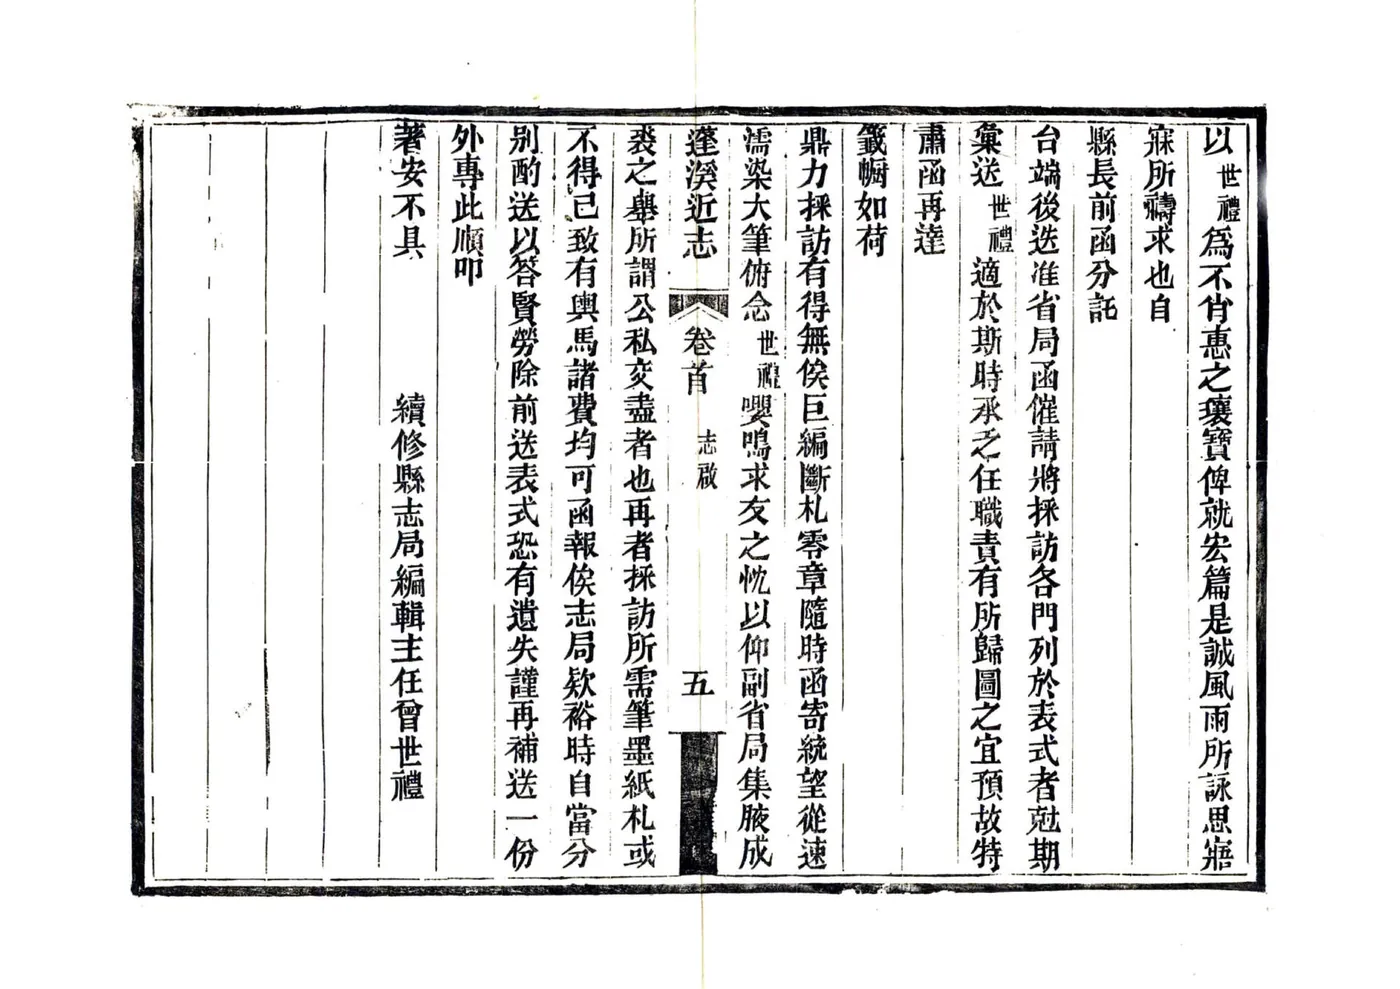 以世禮爲不肯惠之瓌寶俾就宏篇是誠風雨所詠思寤
寐所禱求也自
縣長前函分託
台端後迭准省局函催請將採訪各門列於表式者尅期
彙送世禮適於斯時承乏任職責有所歸圖之宜預故特
肅函再達
籤幮如荷
鼎力採訪有得無俟巨編斷札零章隨時函寄統望從速
濡染大筆俯念世禮嚶鳴求友之忱以仰副省局集腋成
蓬溪近志 卷首 志啟 五
裘之舉所謂公私交盡者也再者採訪所需筆墨紙札或
不得已致有輿馬諸費均可函報俟志局欵裕時自當分
别酌送以答賢勞除前送表式恐有遺失謹再補送一份
外專此順叩
著安不具 續修縣志局編輯主任曾世禮